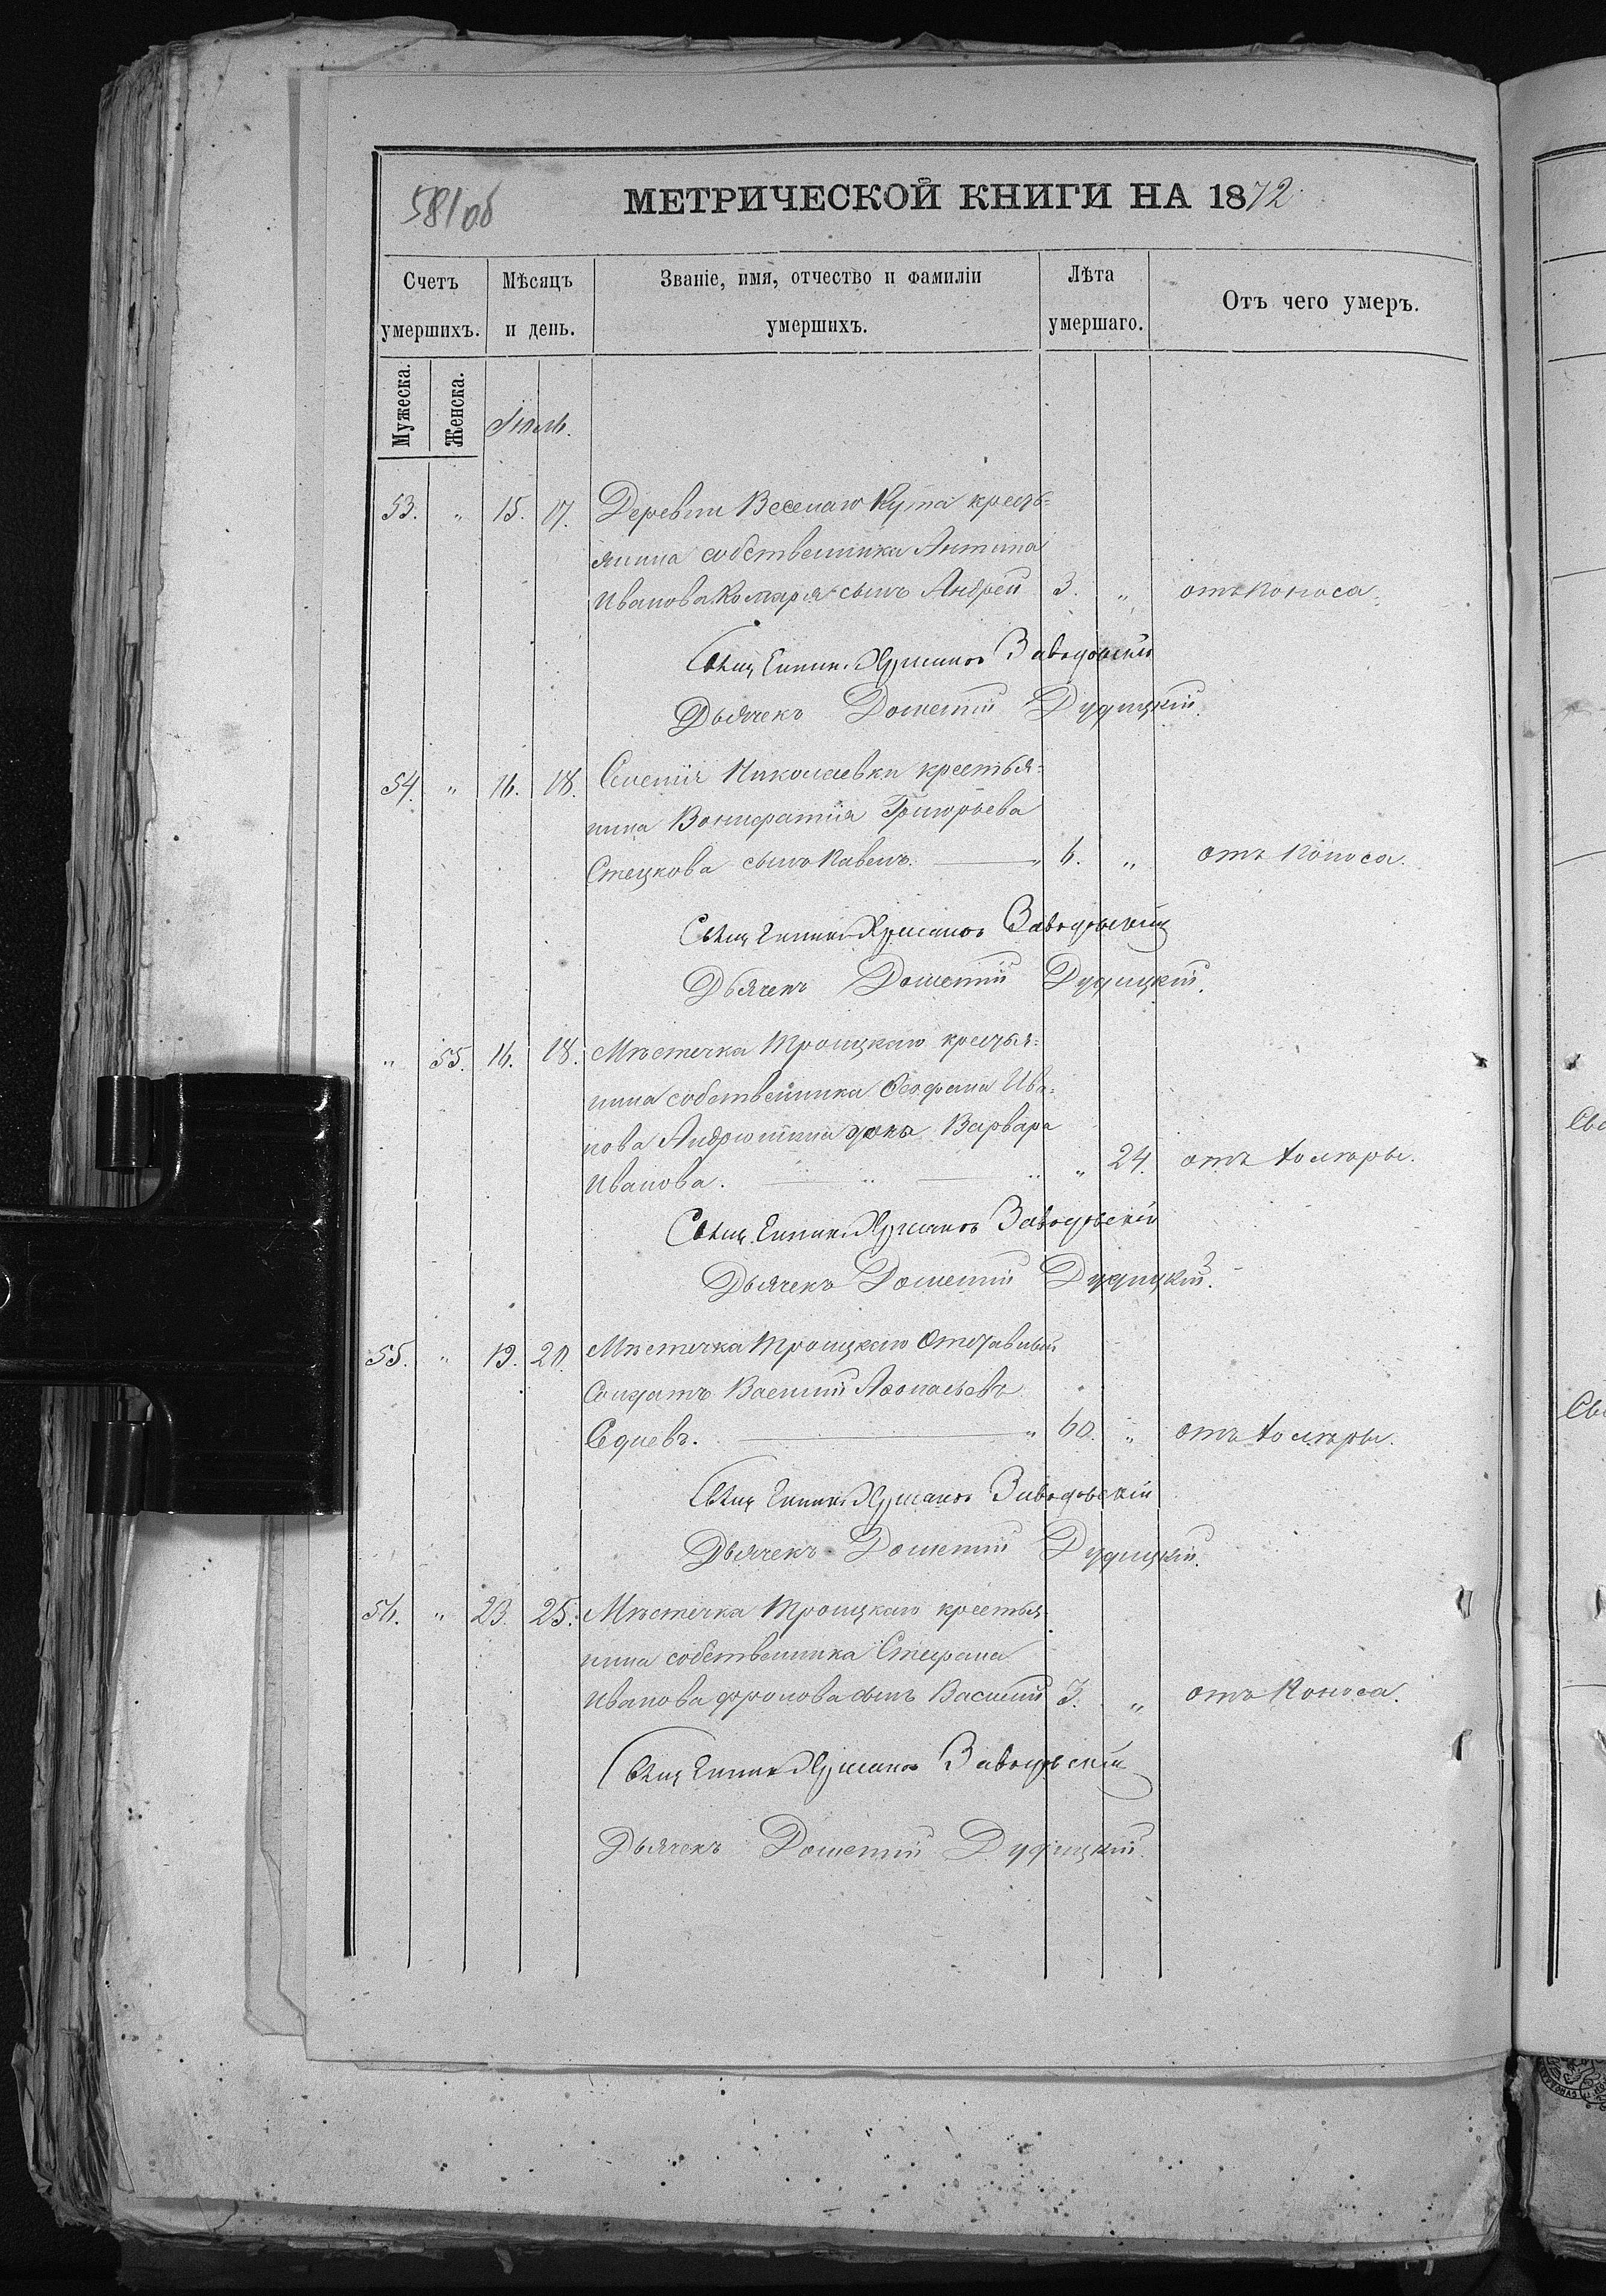 581об
МЕТРИЧЕСКОЙ КНИГИ НА 1872
Счетъ умершихъ.
Мѣсяцъ и день.
Званіе, имя, отчество и фамиліи умершихъ.
Лѣта умершаго.
Отъ чего умеръ.
Мужеска.
Женска.
Іюль.
53. " 15. 17. Деревни Веселаго Кута кресть=
янина собственника Антипа
Иванова Комаря сынъ Андрей 3. " отъ поноса.
Свящ. Хрисанѳъ Заводовскій
Дьячекъ Дометій Дудицкій.
54. " 16. 18. Николаевки крестья=
нина Вонифатія Григорьева
Стецкова сынъ Павелъ. " 6. " отъ поноса.
Свящ. Хрисанѳъ Заводовскій
Дьячекъ Дометій Дудицкій.
" 55. 16. 18. Мѣстечка Троицкаго крестья=
нина собственника Ѳеофана Ива=
нова жена Варвара
Иванова. " " " 24. отъ холеры.
Свящ. Хрисанѳъ Заводовскій
Дьячекъ Дометій Дудицкій.
55. " 19. 20. Мѣстечка Троицкаго Отставный
Солдатъ Василій Аѳонасьевъ
Седневъ. " 60. " отъ холеры.
Свящ. Хрисанѳъ Заводовскій
Дьячекъ Дометій Дудицкій.
56. " 23. 25. Мѣстечка Троицкаго крестья
нина собственника Стефана
Иванова Фролова сынъ Василій 3. " отъ Поноса.
Свящ. Хрисанѳъ Заводовскій
Дьячекъ Дометій Дудицкій.